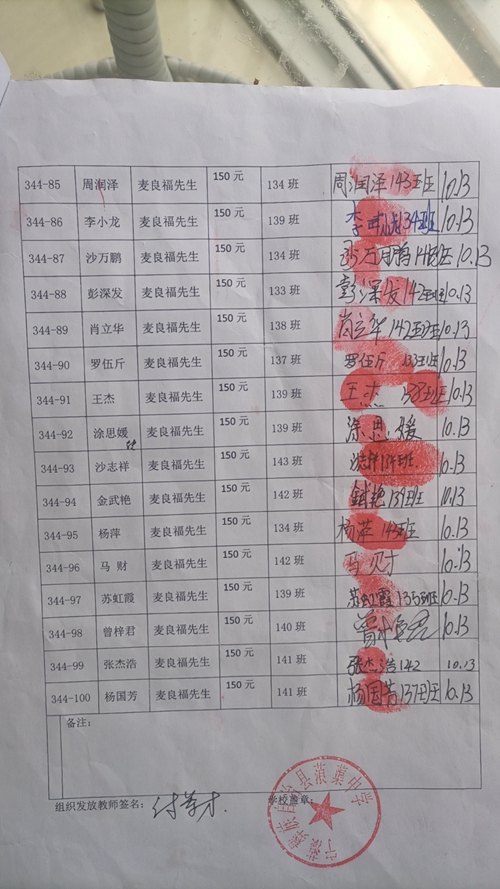 344-85 周润泽 麦良福先生 150元 134班 周润泽143班 10.13
344-86 李小龙 麦良福先生 150元 139班 李 134班 10.13
344-87 沙万鹏 麦良福先生 150元 134班 沙万鹏 10.13
344-88 彭深发 麦良福先生 150元 133班 彭深发142班 10.13
344-89 肖立华 麦良福先生 150元 138班 肖立华142班 10.13
344-90 罗伍斤 麦良福先生 150元 137班 罗伍斤 133班 10.13
344-91 王杰 麦良福先生 150元 139班 王杰 138班 10.13
344-92 涂思媛 麦良福先生 150元 139班 涂思媛 10.13
344-93 沙志祥 麦良福先生 150元 143班 沙志祥 134班 10.13
344-94 金武艳 麦良福先生 150元 142班 139班 10.13
344-95 杨萍 麦良福先生 150元 134班 杨萍 143班 10.13
344-96 马 财 麦良福先生 150元 142班 马 财 10.13
344-97 苏虹霞 麦良福先生 150元 139班 苏虹霞 135班 10.13
344-98 曾梓君 麦良福先生 150元 140班 曾梓君 10.13
344-99 张杰浩 麦良福先生 150元 141班 张杰浩142 10.13
344-100 杨国芳 麦良福先生 150元 141班 杨国芳137班 10.13
备注：
组织发放教师签名： 学校盖章：